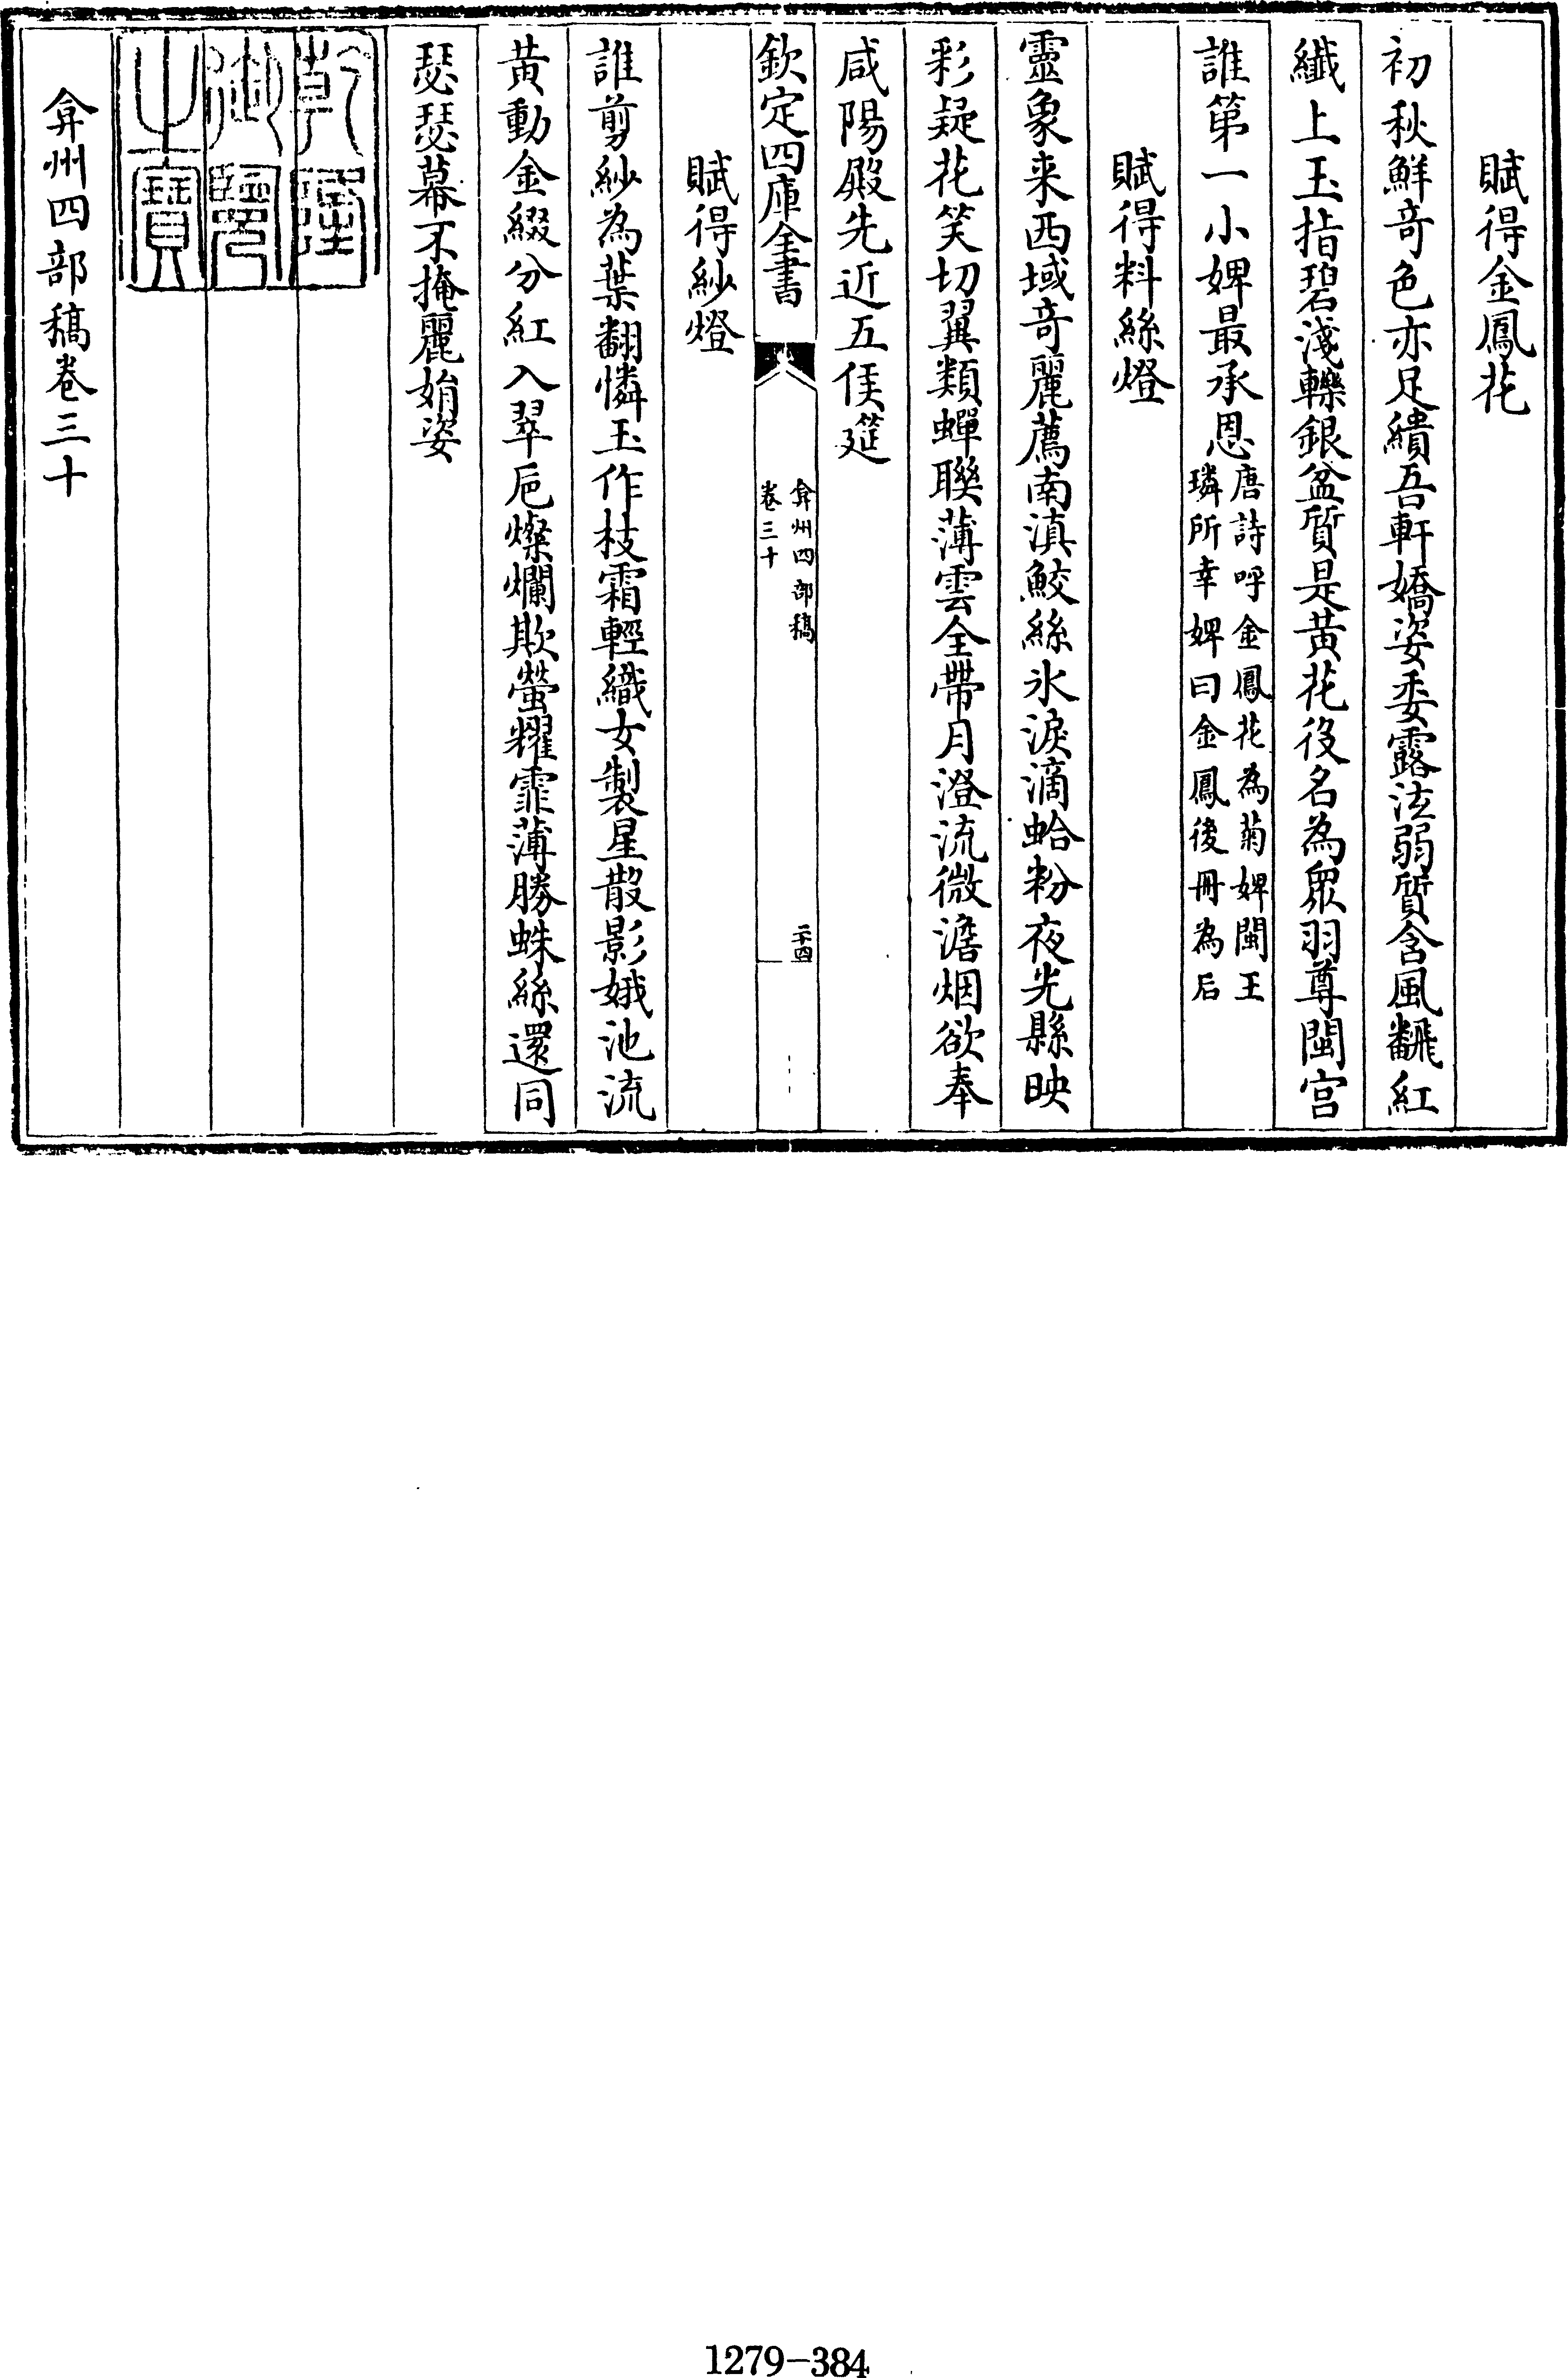 賦得金鳳花
初秋鮮竒色亦足繢吾軒嬌姿委露泫弱質含風飜紅
纖上玉指碧淺轢銀盆質是黃花役名為衆羽尊閩宫
誰第一小婢最承恩
唐詩呼金鳳花為菊婢閩王
璘所幸婢曰金鳳後冊為后
賦得料絲燈
靈象来西域竒麗薦南滇鮫絲氷淚滴蛤粉夜光縣映
彩疑花笑切翼類蟬聨薄雲全帶月澄流微澹烟欲奉
咸陽殿先近五侯筵
欽定四庫全書
弇州四部稿
卷三十
二十四
賦得紗燈
誰剪紗為葉翻憐玉作枝霜輕織女製星散影娥池流
黃動金綴分紅入翠巵燦爛欺螢耀霏薄勝蛛絲還同
瑟瑟幕不掩麗娟姿
乾隆
御覽
之寶
弇州四部稿卷三十
1279-384